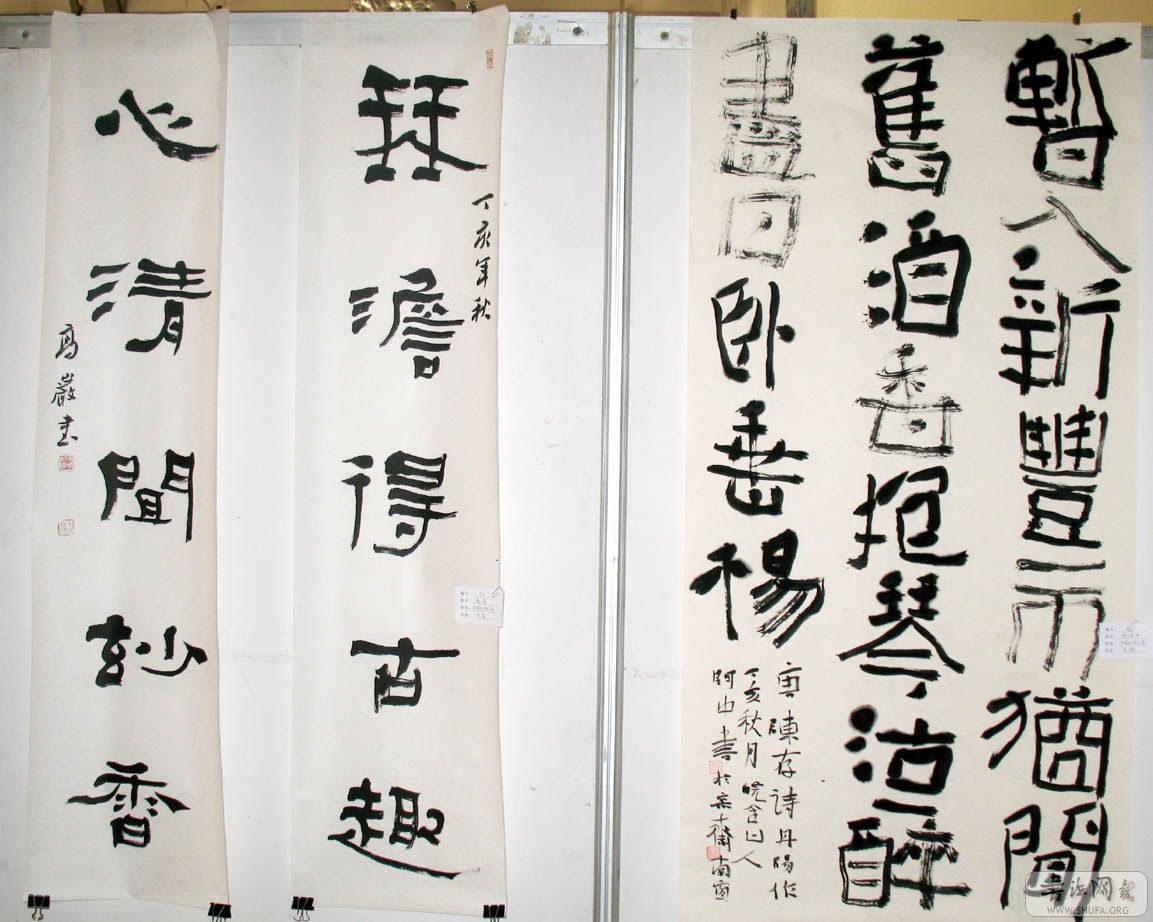 暫入新豐市猶聞
舊酒香抱琴沽一醉
盡日臥垂楊
唐陳存詩丹陽作
丁亥秋月皖含山人
山書於齋南窗
琴澹得古趣
丁亥年秋
心清聞妙香
高巖書
书法网
WWW.SHUFA.ORG